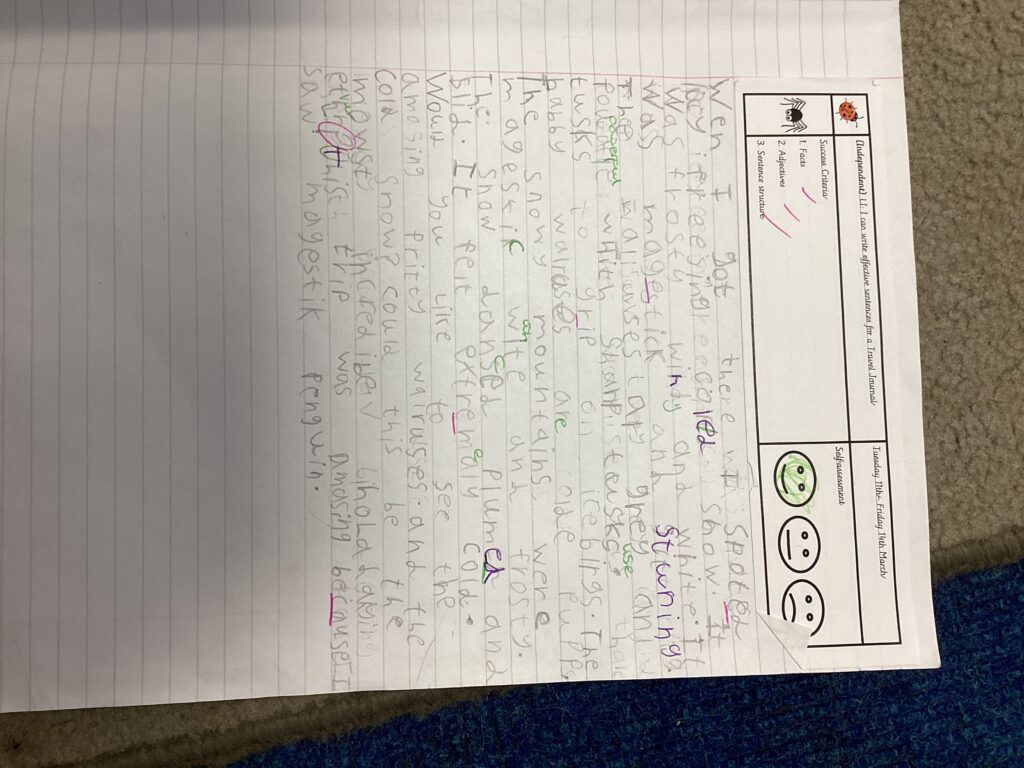 (Independent) LI: I can write effective sentences for a Travel Journal
Tuesday 11th- Friday 14th March
Success Criteria
1. Facts
2. Adjectives
3. Sentence structure
Self assessment
Wen I got there I spoted
icy freeesing snow. It
Was frosty windy and white. It
Was magestick and stuning.
The walruses grey and
peacepul whith sharp tusks.
use
tusks to grip on icebirgs. The
habby walrases are cide
The snowy mountains were
magessic wite and frosty.
The snow dansed plumed and
slid. It felt extremaly cold.
Woud you like to see the
amosing prity warases. and the
cold snow? could this be the
mowst incrediblly
this trip was amosing becouse I
saw magestik penguin.